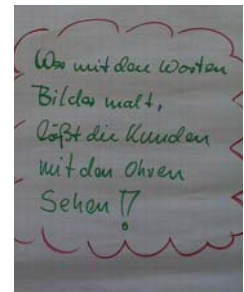 Wer mit den Worten
Bilder malt,
läßt die Kunden
mit den Ohren
Sehen !?